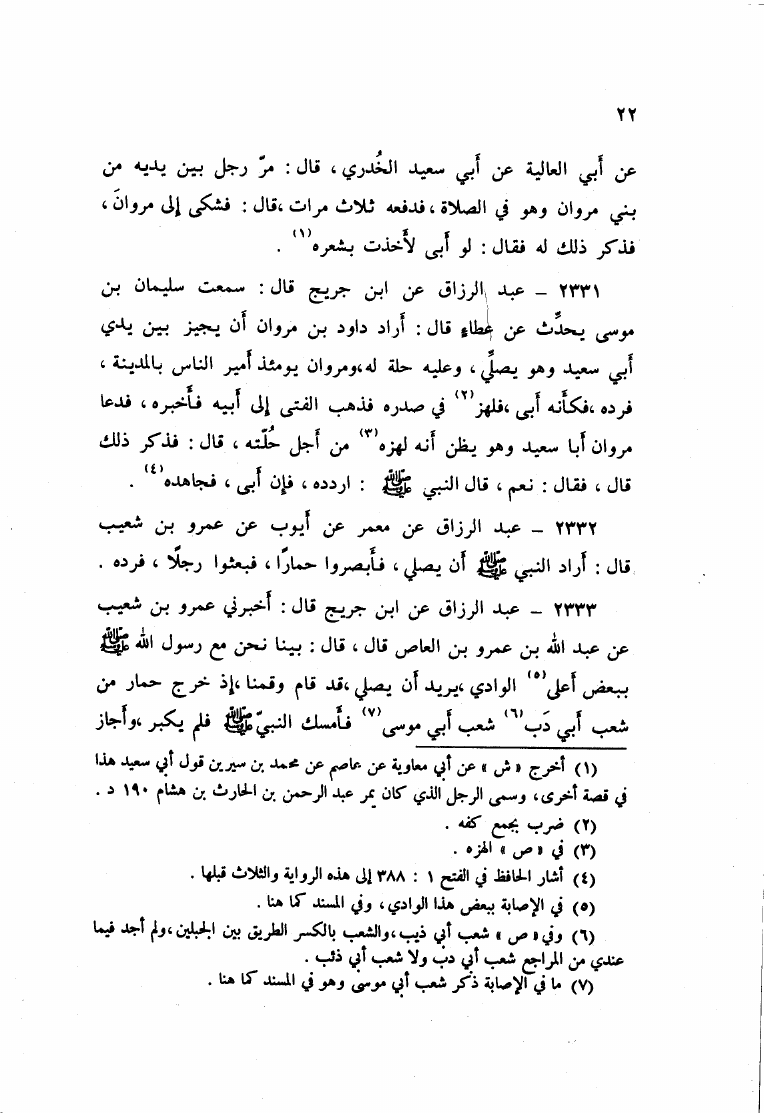 ٢٢
عن أَبي العالية عن أَبي سعيد الخُدري ، قال : مرّ رجل بين يديه من
بني مروان وهو في الصلاة ، فدفعه ثلاث مرات ،قال : فشكى إلى مروانَ ،
فذكر ذلك له فقال : لو أَبى لأَخذت بشعره(١) .
٢٣٣١ – عبد الرزاق عن ابن جريج قال : سمعت سليمان بن
موسى يحدِّث عن عطاءٍ قال : أَراد داود بن مروان أَن يجيز بين يدي
أَبي سعيد وهو يصلِّي ، وعليه حلة له،ومروان يومئذ أَمير الناس بالمدينة ،
فرده ،فكأَنه أَبى ،فلهز(٢) في صدره فذهب الفتى إلى أَبيه فأَخبره ، فدعا
مروان أَبا سعيد وهو يظن أَنه لهزه(٣) من أَجل حُلَّته ، قال : فذكر ذلك
قال ، فقال : نعم ، قال النبي ﷺ : اردده ، فإن أَبى ، فجاهده(٤) .
٢٣٣٢ – عبد الرزاق عن معمر عن أَيوب عن عمرو بن شعيب
قال : أَراد النبي ﷺ أَن يصلي ، فأَبصروا حمارًا ، فبعثوا رجلًا ، فرده .
٢٣٣٣ – عبد الرزاق عن ابن جريج قال : أَخبرني عمرو بن شعيب
عن عبد الله بن عمرو بن العاص قال ، قال : بينا نحن مع رسول الله ﷺ
ببعض أَعلى(٥) الوادي ،يريد أَن يصلي ،قد قام وقمنا ،إذ خرج حمار من
شعب أَبي دَب(٦) شعب أَبي موسى(٧) فأَمسك النبيّ ﷺ فلم يكبر ،وأَجاز
(١) أخرج « ش » عن أبي معاوية عن عاصم عن محمد بن سيرين قول أبي سعيد هذا
في قصة أخرى ، وسمى الرجل الذي كان يمر عبد الرحمن بن الحارث بن هشام ١٩٠ د .
(٢) ضرب بجمع كفه .
(٣) في « ص » الهزه .
(٤) أشار الحافظ في الفتح ١ : ٣٨٨ إلى هذه الرواية والثلاث قبلها .
(٥) في الإصابة ببعض هذا الوادي ، وفي المسند كما هنا .
(٦) وفي « ص » شعب أبي ذيب ،والشعب بالكسر الطريق بين الجبلين ،ولم أجد فيما
عندي من المراجع شعب أبي دب ولا شعب أبي ذئب .
(٧) ما في الإصابة ذكر شعب أبي موسى وهو في المسند كما هنا .